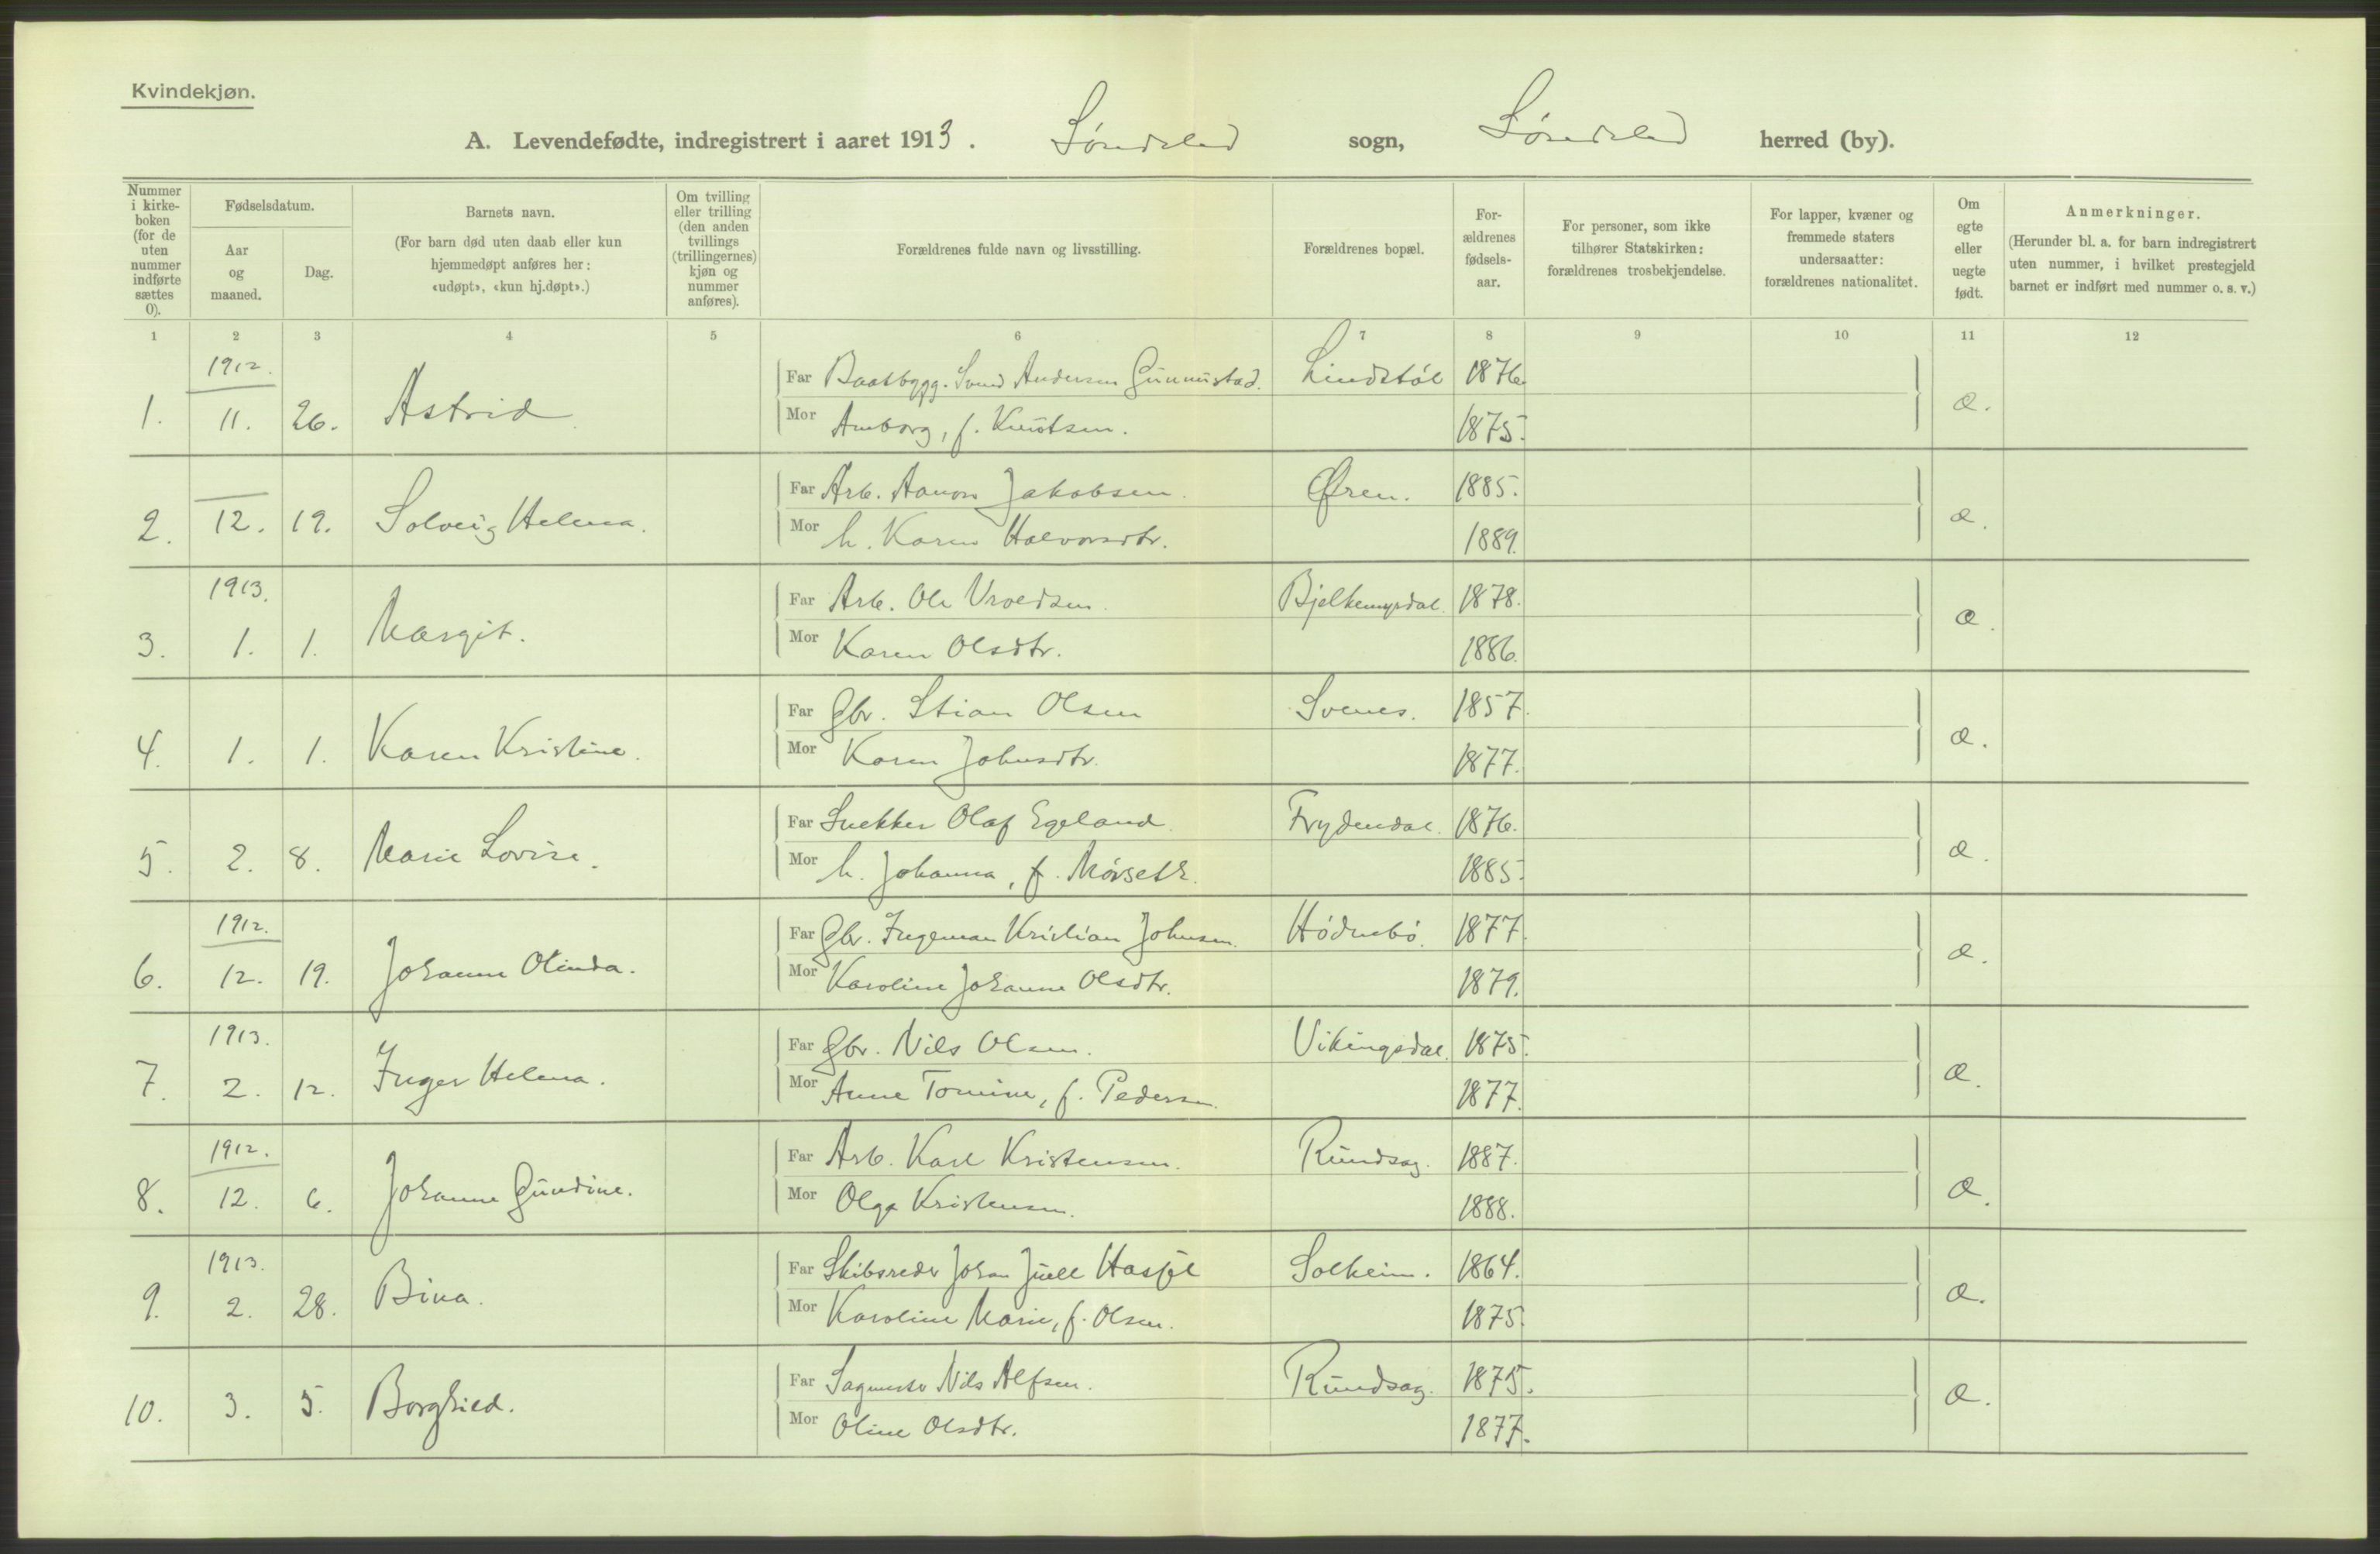 Kvindekjøn.
A. Levendefødte, indregistrert i aaret 1913. Søndeled sogn, Søndeled herred (by).
Nummer i kirke-boken (for de uten nummer indførte sættes 0).
Fødselsdatum.
Aar og maaned.
Dag.
Barnets navn.
(For barn død uten daab eller kun hjemmedøpt anføres her: «udøpt», «kun hj.døpt».)
Om tvilling eller trilling (den anden tvillings (trillingernes) kjøn og nummer anføres).
Forældrenes fulde navn og livsstilling.
Forældrenes bopæl.
For-ældrenes fødsels-aar.
For personer, som ikke tilhører Statskirken: forældrenes trosbekjendelse.
For lapper, kvæner og fremmede staters undersaatter: forældrenes nationalitet.
Om egte eller uegte født.
Anmerkninger.
(Herunder bl. a. for barn indregistrert uten nummer, i hvilket prestegjeld barnet er indført med nummer o. s. v.)
1 2 3 4 5 6 7 8 9 10 11 12
1912.
Far Baatbygg. Svend Andersen Gunnustad. Lindstøl 1876.
1. 11. 26. Astrid æ.
Mor Amborg, f. Knutsen. 1875.
Far Arb. Aanon Jakobsen. Øren. 1885.
2. 12. 19. Solveig Helena. æ.
Mor h. Karen Halvorsdtr. 1889.
1913.
Far Arb. Ole Vroldsen. Bjelkemyrdal. 1878.
3. 1. 1. Margit. æ.
Mor Karen Olsdtr. 1886.
Far Gbr. Stian Olsen Svenes. 1857.
4. 1. 1. Karen Kristine. æ.
Mor Karen Johnsdtr. 1877.
Far Snekker Olaf Egeland. Frydendal. 1876.
5. 2. 8. Marie Lovise. æ.
Mor h. Johanna, f. Mørseth. 1885.
1912.
Far Gbr. Ingeman Kristian Johnsen. Hødnebø. 1877.
6. 12. 19. Johanne Olinda. æ.
Mor Karoline Johanne Olsdtr. 1879.
1913.
Far Gbr. Nils Olsen. Vikingsdal. 1875.
7. 2. 12. Inger Helena. æ.
Mor Anne Tomine, f. Pedersen. 1877.
1912.
Far Arb. Karl Kristensen. Rundsag. 1887.
8. 12. 6. Johanne Gundine. æ.
Mor Olga Kristensen. 1888.
1913.
Far Skibsreder Johan Juell Hasfjel Solheim. 1864.
9. 2. 28. Bina. æ.
Mor Karoline Marie, f. Olsen. 1875.
Far Sagmester Nils Alfsen. Rundsag. 1875.
10. 3. 5. Borghild. æ.
Mor Oline Olsdtr. 1877.